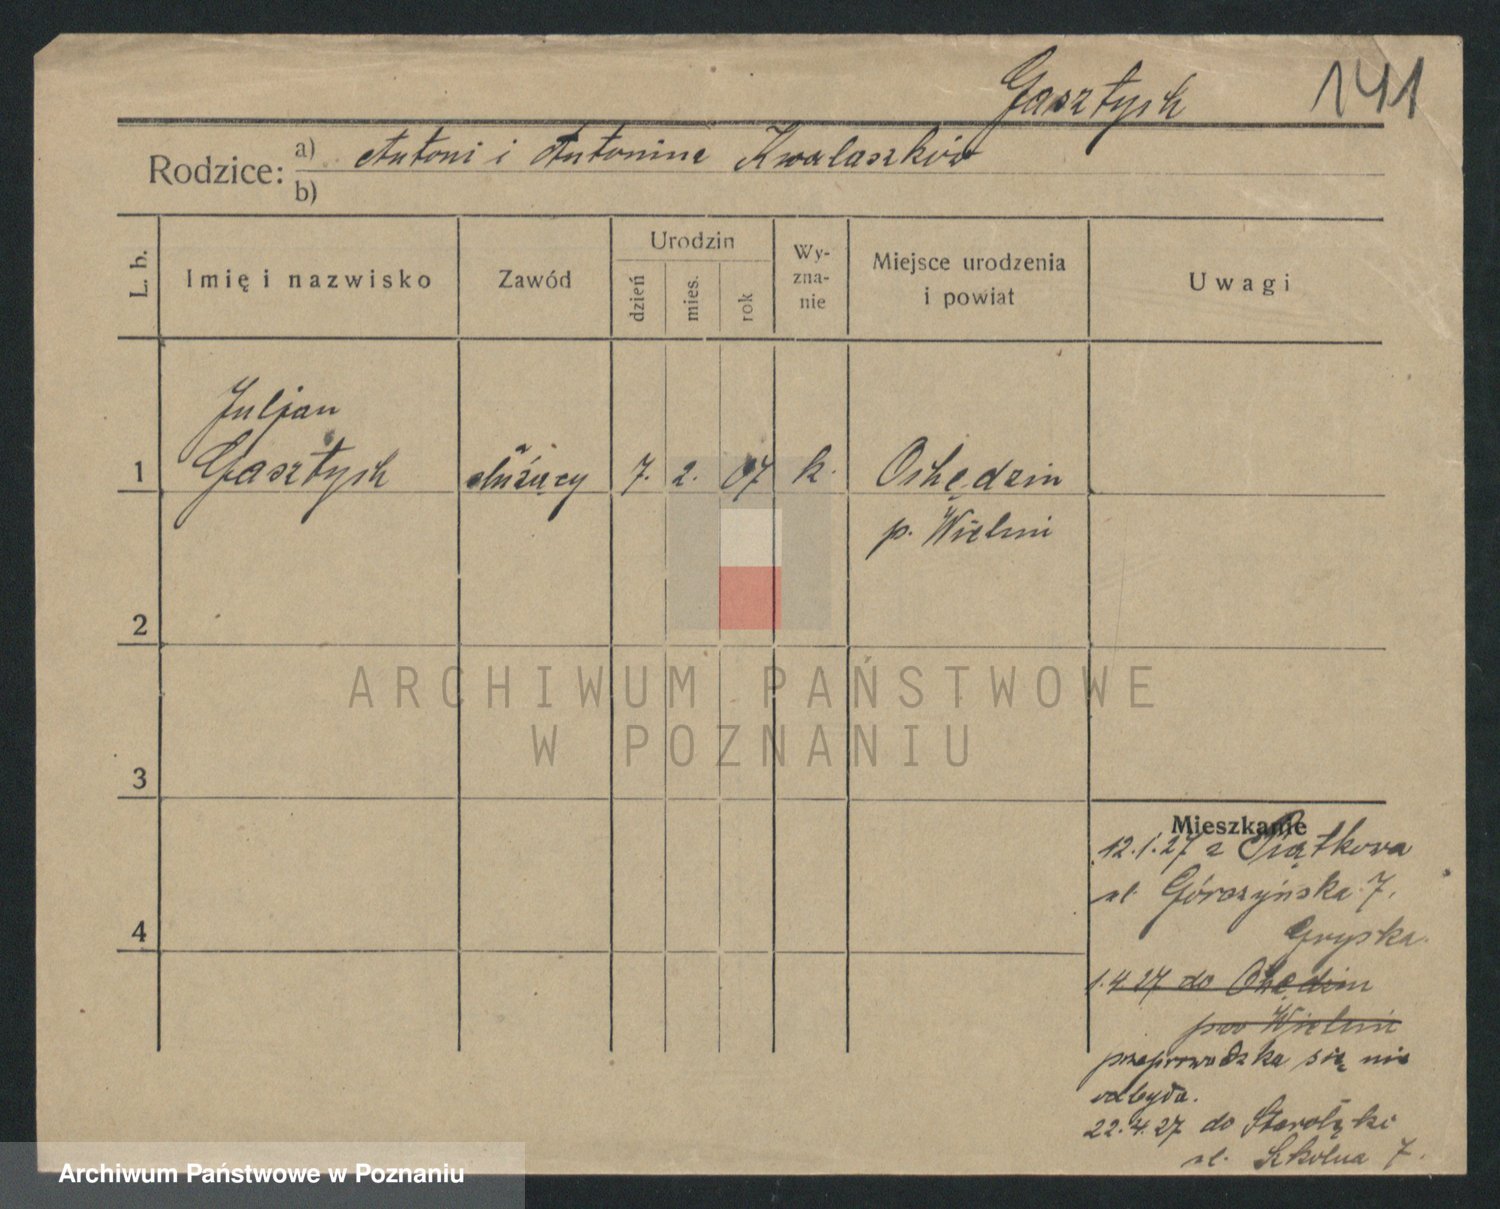 Gasztych
141
Rodzice:
a) Antoni i Antonina Kwalaszków
b)
L. b.
Imię i nazwisko
Zawód
Urodzin
dzień
mies.
rok
Wy-
zna-
nie
Miejsce urodzenia
i powiat
Uwagi
Juljan
1 Gasztych służący 7. 2. 07 k. Ochędzin
p. Wieluń
2
3
4
ARCHIWUM PAŃSTWOWE
W POZNANIU
Mieszkanie
12.1.27 z Piątkowa
ul. Górczyńska 7.
Gryska.
1.4.27 do Ochędzin
pow Wieluń
przeprowadzka się nie
odbyła.
22.4.27 do Starołęki
ul. Szkolna 7.
Archiwum Państwowe w Poznaniu